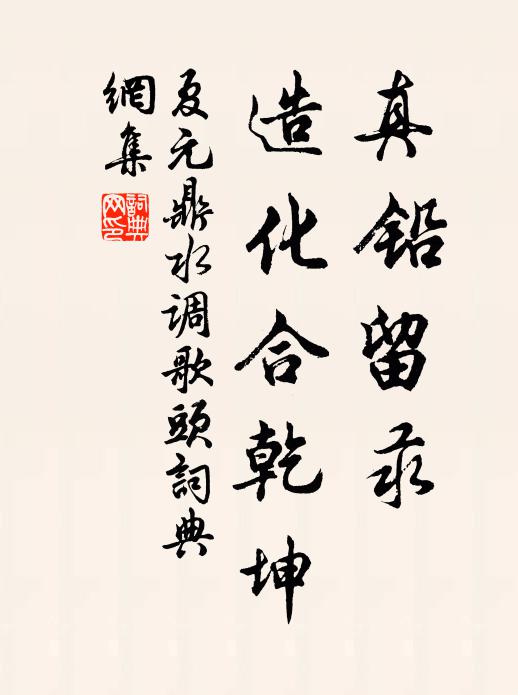 真鉛留汞
造化合乾坤
夏元鼎水調歌頭詞典
網集
詞典
网印